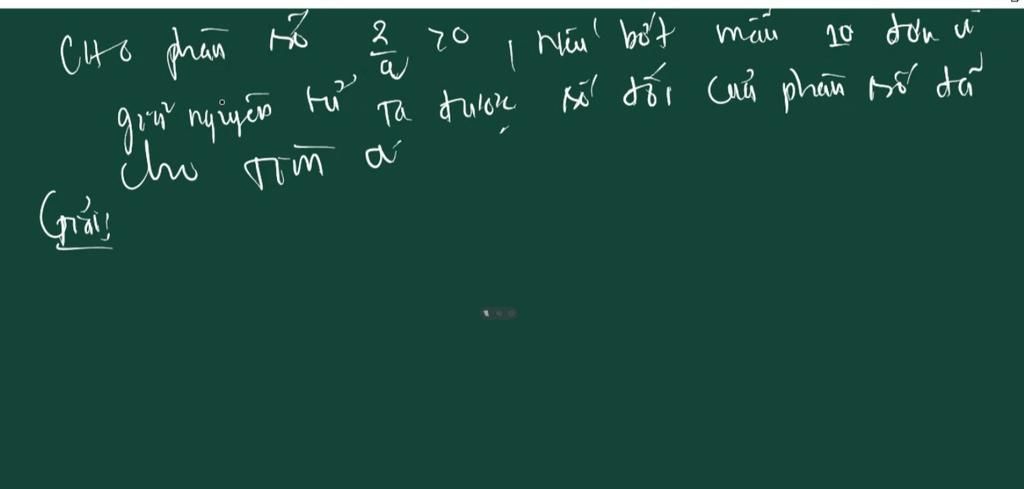 CHO phân số 2/a >0, Nếu bớt mẫu 10 đơn vị
giữ nguyên tử Ta được số đối của phân số đã
cho Tìm a
Giải: